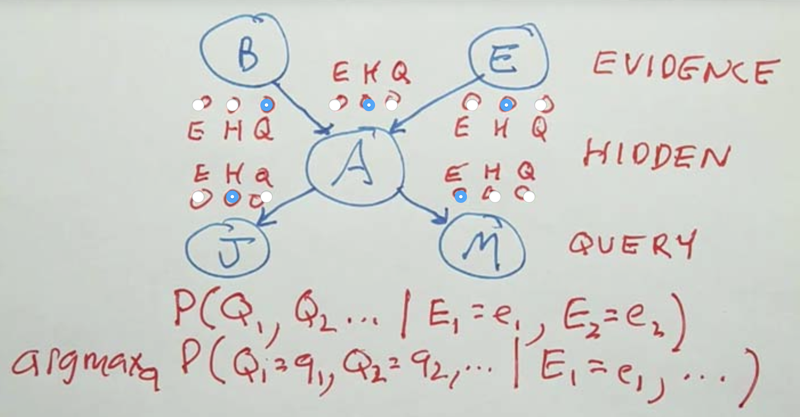 B
E
EVIDENCE
E H Q
E H Q
E H Q
A
HIDDEN
E H Q
E H Q
J
M
QUERY
P(Q₁, Q₂ ... | E₁=e₁, E₂=e₂)
argmax_q P(Q₁=q₁, Q₂=q₂, ... | E₁=e₁, ...)